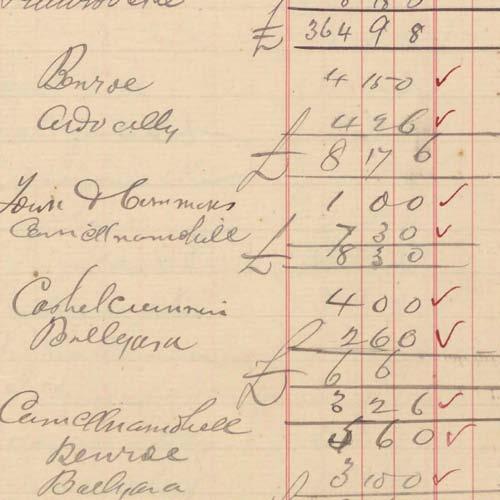 £ 364 9 8
Benroe 4 15 0 ✓
Ardocally 4 2 6 ✓
£ 8 17 6
Town & Commons 1 0 0 ✓
7 3 0 ✓
£ 8 3 0
Cashelcummin 4 0 0 ✓
Ballyara 2 6 0 ✓
£ 6 6
3 2 6 ✓
Benroe 6 0 ✓
Ballyara 3 10 0 ✓